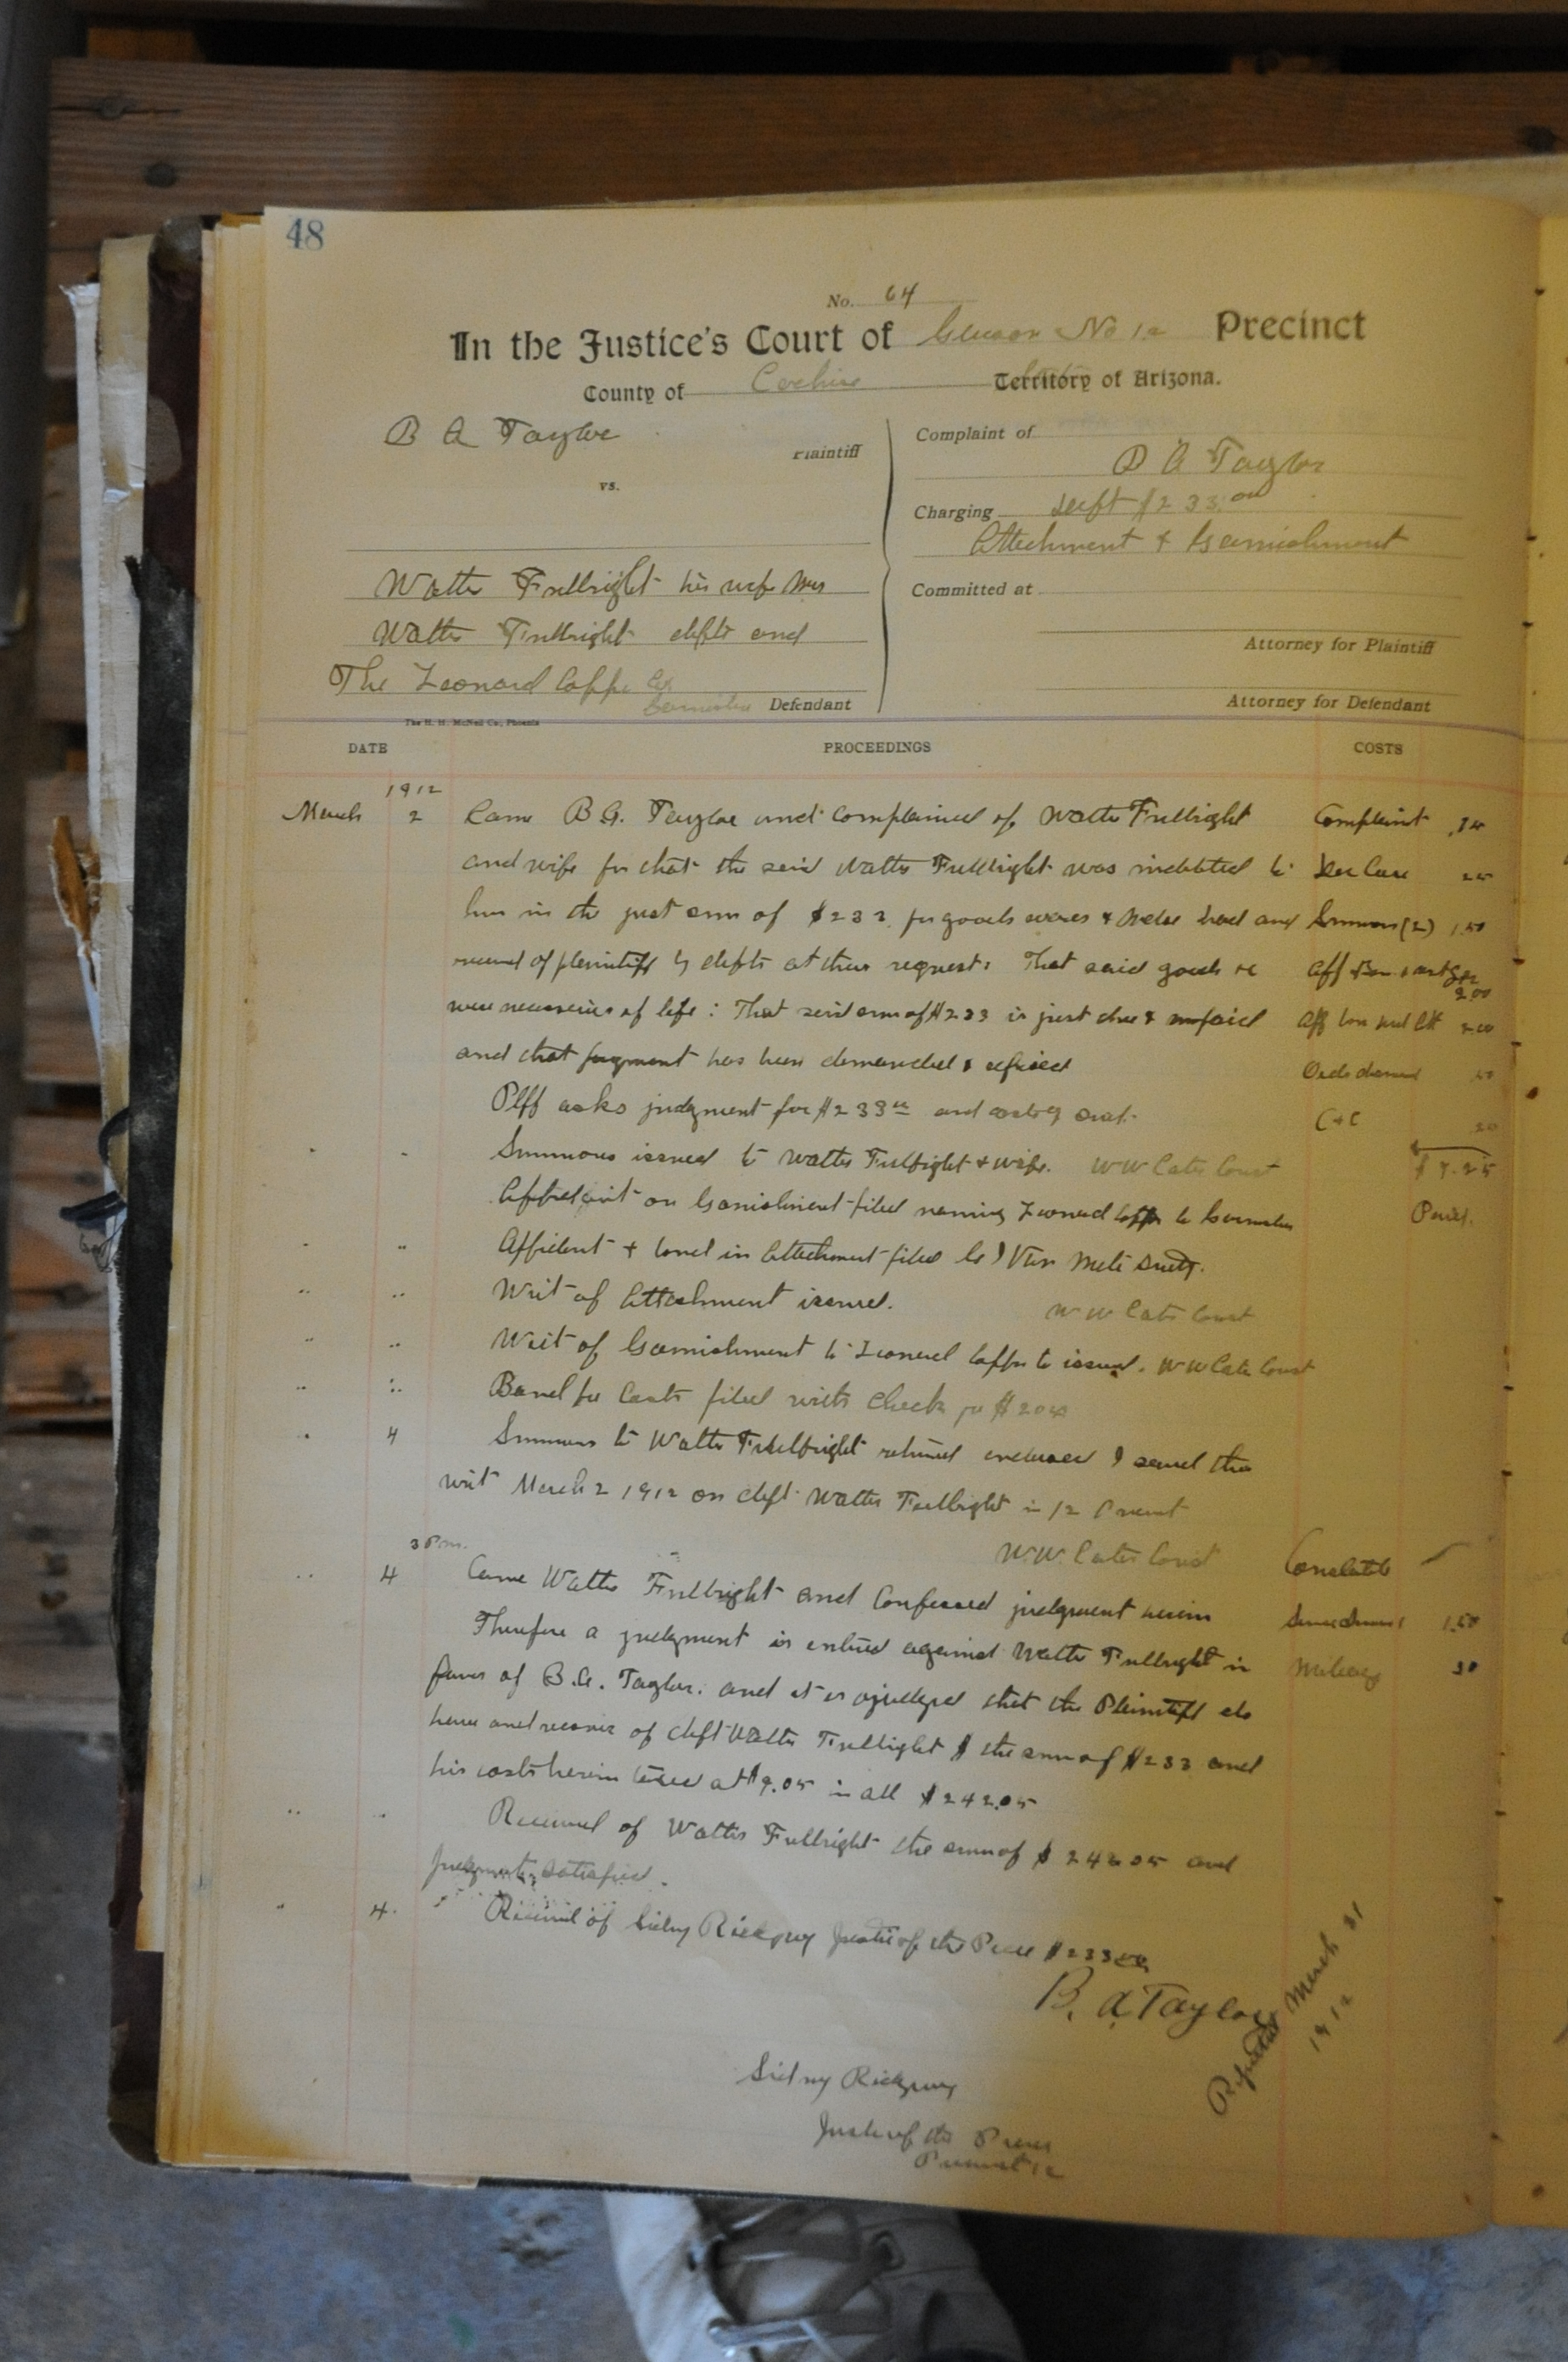 48
No. 64
In the Justice's Court of Gleason No 12 Precinct
County of Cochise Territory of Arizona.
B A Taylor
Plaintiff
vs.
Walter Fulbright his wife Mrs
Walter Fulbright defts and
The Leonard Copper Co
Garnishee Defendant
The H. H. McNeil Co., Phoenix
Complaint of
B A Taylor
Charging Debt $233.00
Attachment & Garnishment
Committed at
Attorney for Plaintiff
Attorney for Defendant
DATE PROCEEDINGS COSTS
1912
March 2 Came B.A. Taylor and complained of Walter Fulbright Complaint
and wife for that the said Walter Fulbright was indebted to 25
him in the just sum of $233 for goods wares & mdse had and Summons (2) 1.50
received of plaintiff by defts at their request: That said goods &c Aff
2.00
were necessaries of life: That said sum of $233 is just due & unpaid Aff 2.00
and that payment has been demanded & refused 50
Plff asks judgment for $233 and costs of suit. 20
Summons issued to Walter Fulbright & wife. W W Cates Const $7.25
Affidavit on Garnishment filed naming Leonard Copper Co Garnishee Paid.
Affidavit & bond in Attachment filed Van Mete
Writ of Attachment issued. W W Cates Const
Writ of Garnishment to Leonard Copper Co issued. W W Cates Const
Bond for Costs filed with check for $20
4 Summons to Walter Fulbright returned endorsed I served this
writ March 2 1912 on deft Walter Fulbright in 12 Precinct
W.W. Cates Const Constable
3 P.m.
4 Came Walter Fulbright and Confessed judgment herein 1.50
Therefore a judgment is entered against Walter Fulbright in Mileage 30
favor of B.A. Taylor. and it is ajudged that the Plaintiff do
have and recover of deft Walter Fulbright $ the sum of $233 and
his costs herein taxed at $9.05 in all $242.05
Received of Walter Fulbright the sum of $242.05 and
judgment satisfied.
4. Received of Sidny Ridgway Justice of the Peace $233.00
B. A Taylor
Reported March 31
1912
Sidny Ridgway
Justice of the Peace
Precinct 12